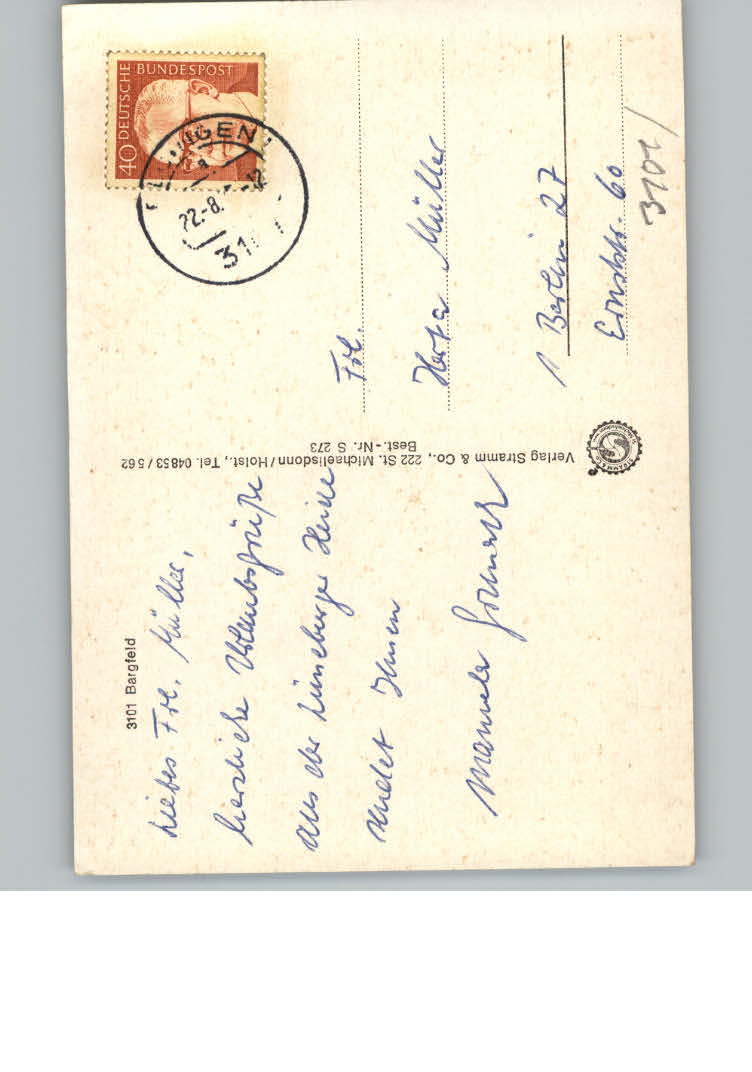 3101 Bargfeld
Liebes Frl. Müller,
herzliche Urlaubsgrüße
aus der Lüneburger Heide
sendet Ihnen
Manuela
Verlag Stramm & Co., 222 St. Michaelisdonn/Holst., Tel. 04853/562
Best.-Nr. S 273
DEUTSCHE BUNDESPOST
40
22.-8.
31
Frl.
Herta Müller
1 Berlin 27
Ernststr. 60
3101/